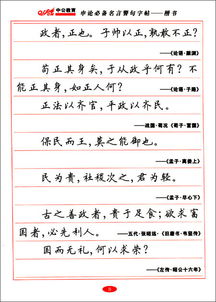 中公教育 申论必备名言警句字帖——楷书
政者，正也。子帅以正，孰敢不正？
——《论语·颜渊》
苟正其身矣，于从政乎何有？不
能正其身，如正人何？
——《论语·子路》
正法以齐官，平政以齐民。
——战国·荀况《荀子·富国》
保民而王，莫之能御也。
——《孟子·离娄上》
民为贵，社稷次之，君为轻。
——《孟子·尽心下》
古之善政者，贵于足食；欲求富
国者，必先利人。
——五代·张昭远·《旧唐书·韦坚传》
国而无礼，何以求荣？
——《左传·昭公十六年》